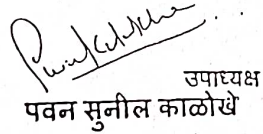 उपाध्यक्ष
पवन सुनील काळोखे